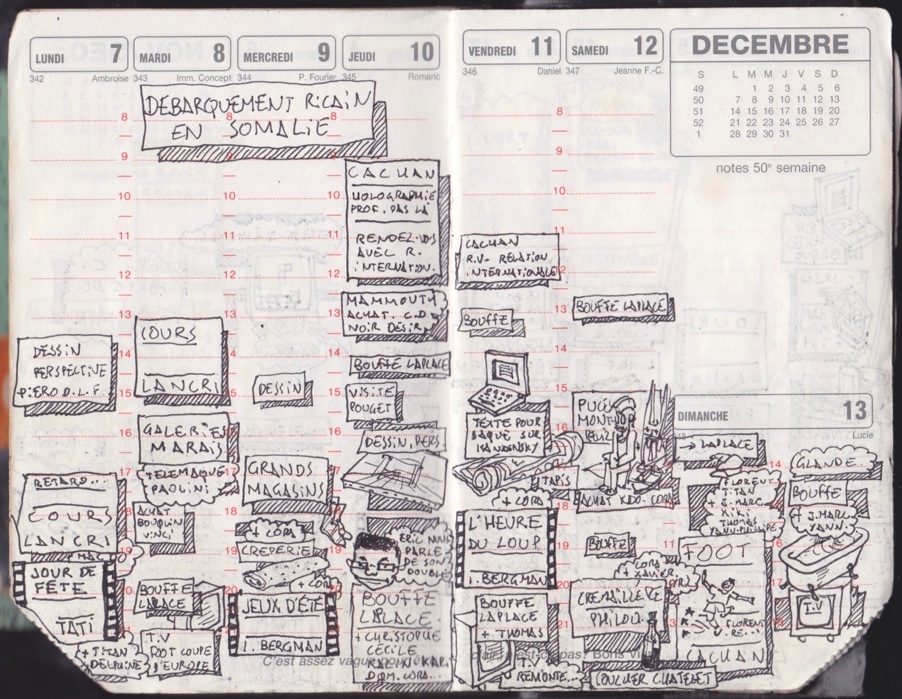 LUNDI 7
342 Ambroise
MARDI 8
343 Imm. Concept
MERCREDI 9
344 P. Fourier
JEUDI 10
345 Romaric
VENDREDI 11
346 Daniel
SAMEDI 12
347 Jeanne F.-C.
DECEMBRE
S L M M J V S D
49 1 2 3 4 5 6
50 7 8 9 10 11 12 13
51 14 15 16 17 18 19 20
52 21 22 23 24 25 26 27
1 28 29 30 31
notes 50e semaine
DEBARQUEMENT RICAIN
EN SOMALIE
DESSIN
PERSPECTIVE
PIERO D.L.F.
RETARD...
COURS
LANCRI
JOUR DE
FÊTE
TATI
+ TITAN
DELPHINE
COURS
LANCRI
GALERIES
MARAIS
TELEMAQUE
PAOLINI
ACHAT
BOUQUIN
VINCI
BOUFFE
LAPLACE
T.V
FOOT COUPE
D'EUROPE
DESSIN
GRANDS
MAGASINS
+ CORA
CREPERIE
+ CORA
JEUX D'ÉTÉ
I. BERGMAN
CACHAN
HOLOGRAPHIE
PROF. PAS LÀ
RENDEZ-VOUS
AVEC R.
INTERNATION.
MAMMOUTH
ACHAT. C.D
NOIR DÉSIR
BOUFFE LAPLACE
VISITE
POUGET
DESSIN, PERS
ERIC NOUS
PARLE
DE SON
DOUBLE
BOUFFE
LAPLACE
+ CHRISTOPHE
CÉCILE
DOM. CORA...
CACHAN
R.V. RELATION
INTERNATIONALE
BOUFFE
TEXTE POUR
SUR
KANDINSKY
TAPIS
+ CORA
L'HEURE
DU LOUP
I. BERGMAN
BOUFFE
LAPLACE
+ THOMAS
T.V
REMONTE...
BOUFFE LAPLACE
PUCES
MONT-
ACHAT KDO-CORA
BOUFFE
+ CORA
+ XAVIER
CREMAILLERE
PHILOU
COUCHER CHATELET
DIMANCHE 13
Lucie
→ LAPLACE
FLORENT
TITAN
+ J. MARC
KIKI
THOMAS
YANN-PHILIPPE
FOOT
FLORENT
CACHAN
GLANDE
BOUFFE
+ J. MARC
YANN.
T.V
C'est assez vague
Boris Vi